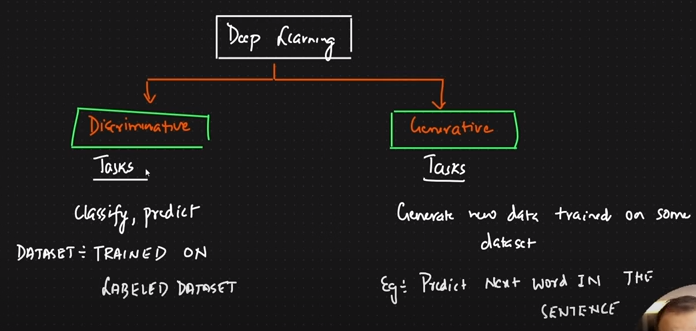 Deep Learning
Discriminative
Tasks
Classify, predict
DATASET ÷ TRAINED ON
LABELED DATASET
Generative
Tasks
Generate new data trained on some
dataset
Eg ÷ Predict Next word IN THE
SENTENCE